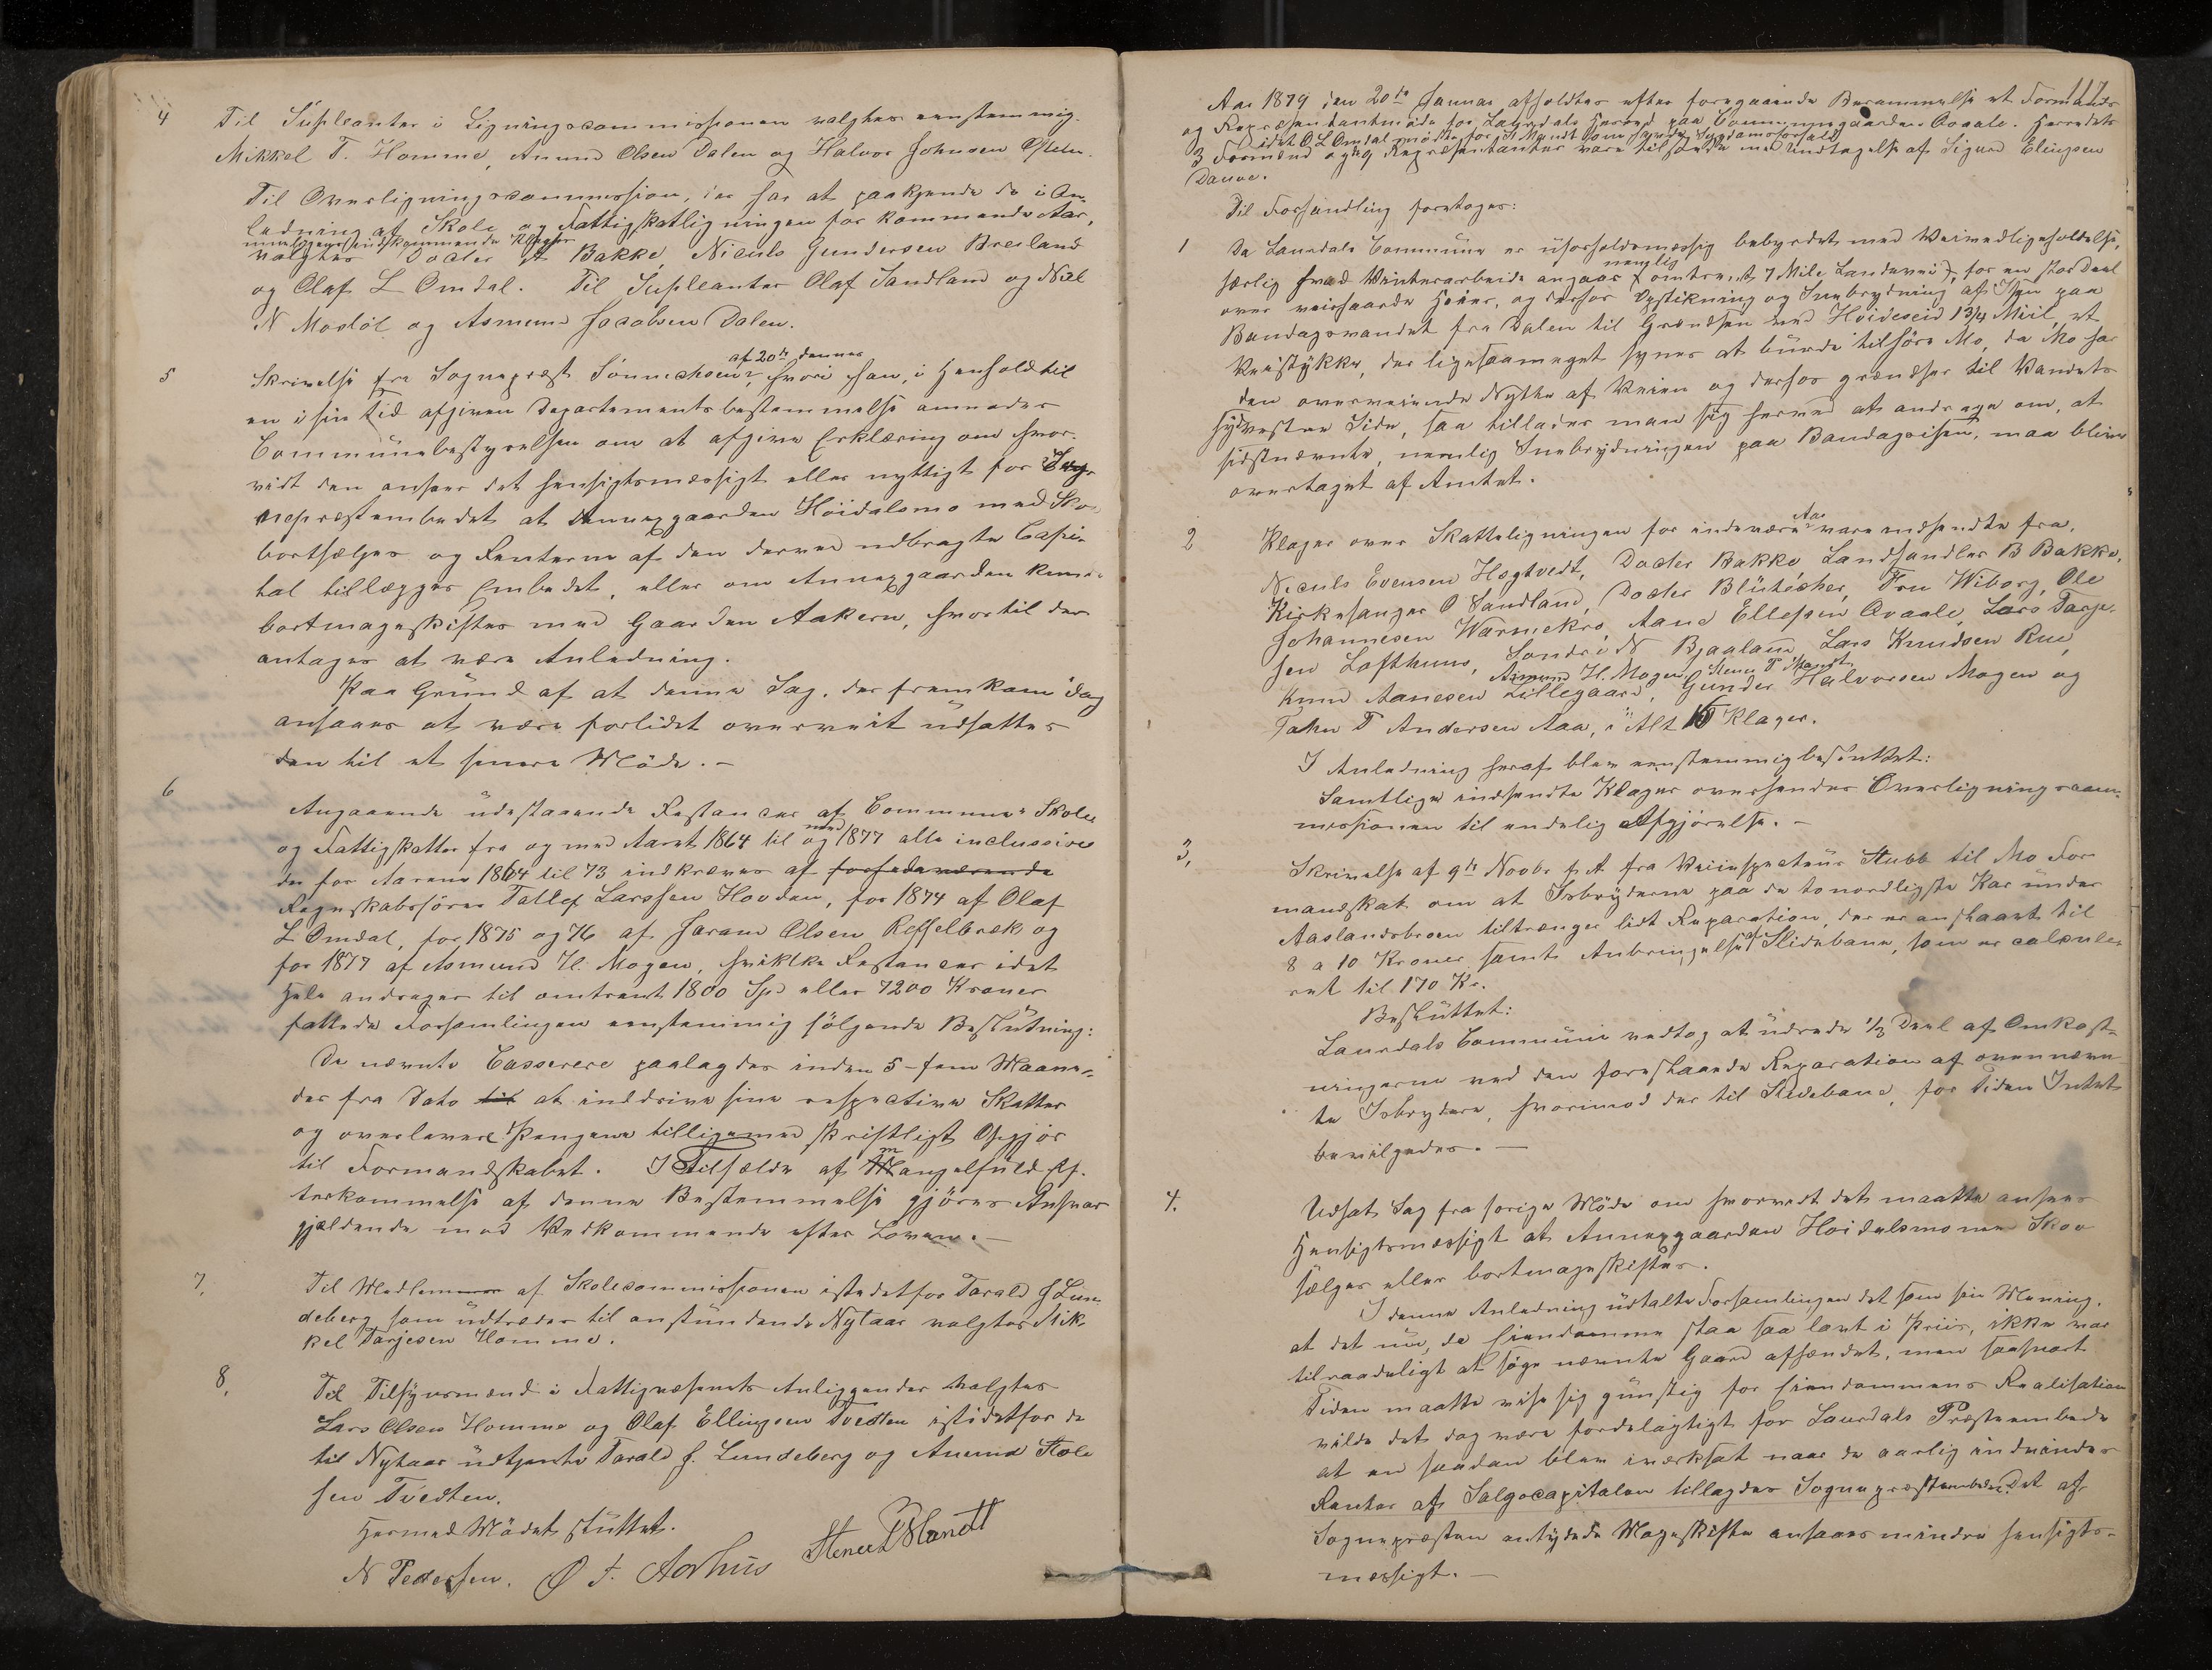 4 Til Supleanter i Ligningscommissionen valgtes eenstemmig.
Mikkel T. Homme, Amund Olsen Dalen og Halvor Johnsen
Til Overligningscommission, der har at paakjende de i An-
ledning af Skole og Fattigskatligningen for kommende Aar,
muligens indkommende Klager
valgtes Docter Bakke, Niculs Gundersen Breiland
og Olaf L Omdal. Til Supleanter Olaf Sandland og Niel
N Modöl og Asmund Jacobsen Dalen.
5 Skrivelse fra Sognepræst Sönnichsen af 20de dennes, hvori han, i Henhold til
en i sin Tid afgiven Departementsbestemmelse anmoder
Communebestyrelsen om at afgive Erklæring om hvor-
vidt den anser det hensigtsmæssigt eller nyttigt for Sog-
nepræstembedet at Annexgaarden Höidalsmo med Skov
bortsælges og Renterne af den derved udbragte Capi-
tal tillægges Embedet, eller om Annexgaarden kunde
bortmageskiftes med Gaarden Aakern, hvortil der
antages at være Anledning.
Paa Grund af at denne Sag, der fremkom i dag
ansaaes at være forlidet overveiet udsattes
den til et senere Möde. -
6 Angaaende udestaaende Restancer af Communens Skole
og Fattigskatter fra og med Aaret 1864 til og med 1877 alle inclusive
der for Aarene 1864 til 73 indkræves af forhenværende
Regnskabsförer Tallef Larssen Hovden, for 1874 af Olaf
L Omdal, for 1875 og 76 af Haraw Olsen Rosselbræk og
for 1877 af Asmund H. Mogen, hvilke Restancer i det
Hele andrager til omtrent 1800 Spd eller 7200 Kroner
fattede Forsamlingen eenstemmig fölgende Beslutning:
De nævnte Casserere paalagdes inden 5 - fem Maane-
der fra Dato til at inddrive sine respective Skatter
og overlevere Pengene tilligemed skriftligt Opgjör
til Formandskabet. I Tilfælde af mangelfuld Ef-
terkommelse af denne Bestemmelse gjöres Ansvar
gjældende mod Vedkommende efter Loven. -
7, Til Medlemmer af Skolecommissionen istedetfor Tarald J Lun-
deberg som udtræder til anstundende Nytaar valgtes Mik-
kel Tarjesen Homme.
8, Til Tilsynsmænd i Fattigvæsenets Anliggender valgtes
Lars Olsen Homme og Olaf Ellingsen Tvedten istedetfor de
til Nytaar udtjente Tarald J. Lundeberg og Anund Hole
sen Tvedten.
Hermed Mödet sluttet.
N Pedersen. Ø T. Aarhus Steners P Mandt
117
Aar 1879 den 20de Januar afholdtes efter foregaaende Berammelse et Formands
og Repræsentantmöde for Laurdals Herred paa Communegaarden Avaale. Herredets
idet O L Omdal mödte for S Mandt som havde Sygdomsforfald
3 Formænd og 9 Repræsentanter vare tilstæde med Undtagelse af Sigurd Elingsen
Daave.
Til Forhandling foretoges:
1 Da Laurdals Commune er uforholdsmæssig bebyrdet med Veivedligeholdelse,
særlig hvad Vinterarbeide angaar (nemlig omtrent 7 Mile Landevei), for en stor Deel
over veirhaarde Heier, og derfor Opstikning og Snebrydning af Isen paa
Bandagsvandet fra Dalen til Grændsen ved Höideseid 1 3/4 Miil, et
Veistykke, der ligesaameget synes at burde tilhöre Mo, da Mo har
den overveiende Nytte af Veien og derfor grændser til Vandets
sydvestre Side, saa tillader man sig herved at andrage om, at
sidstnævnte, nemlig Snebrydningen paa Bandagsisen, maa blive
overtaget af Amtet.
2 Klager over Skatteligningen for indeværende Aar vare indsendte fra,
Niculs Evensen Högtvedt, Docter Bakke Landhandler B Bakke,
Kirkesanger O Sandland, Docter Blütécher, Fru Wiborg, Ole
Johannesen Warnekro, Aane Ellefsen Avaale, Lars Tarje-
sen Lofthuus, Sondre N Bjaaland Lars Knudsen Rue,
Asmund H. Mogen, Stener P Mandt
Knud Aanesen Lillegaard, Gunder Halvorsen Mogen og
Tahn T Andersen Aaa, i Alt 15 Klager.
I Anledning heraf blev eenstemmig besluttet:
Samtlige indsendte Klager oversendes Overligningscom-
missionen til endelig Afgjörelse. -
3, Skrivelse af 9de Novbr f. A fra Veiinspecteur Stubb til Mo For
mandskab om at Isbryderne paa de to nordligste Kar under
Aaslandsbroen tiltrænger lidt Reparation, der er anslaaet til
8 a 10 Kroner, samt Anbringelse af Slidebane, som er calcule-
ret til 170 Kr.
Besluttet:
Laurdals Commune vedtog at udrede 1/3 Deel af Omkost-
ningerne ved den forestaaende Reparation af ovennævn
te Isbrydere, hvorimod der til Slidebane, for Tiden Intet
bevilgedes. -
4. Udsat Sag fra forige Möde om hvorvidt det maatte ansees
Hensigtsmæssigt at Annexgaarden Hoidalsmo med Skov
sælges eller bortmageskiftes.
I denne Anledning udtalte Forsamlingen det som sin Mening,
at det nu, da Eiendomme staa saa lavt i Priis, ikke var
tilraadeligt at söge nævnte Gaard afhændet, men saasnart
Tiden maatte vise sig gunstig for Eiendommens Realisation
vilde det dog være fordelagtigt for Laurdals Præsteembede
at en saadan blev iværksat naar de aarlig indvindes
Renter af Salgscapitalen tillagdes Sognepræstembedet. Det af
Sognepræsten antydede Mageskifte ansaaes mindre hensigts-
mæssigt. -